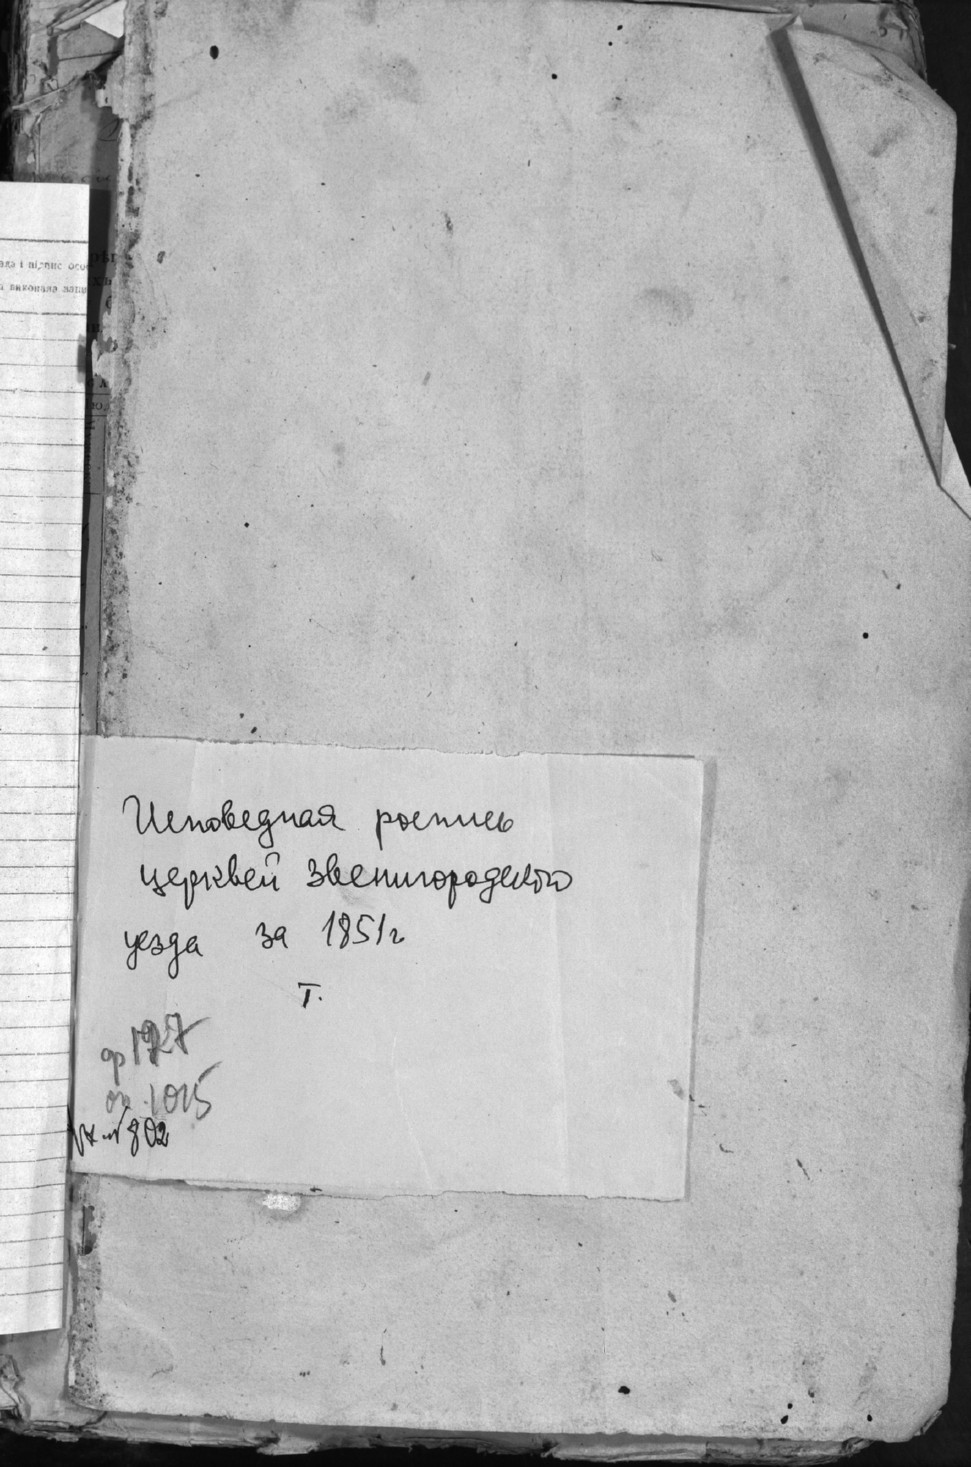 ада і підпис осо
а виконала
Исповедная роспись
церквей Звенигородского
уезда за 1851г
Т.
ф 127
оп. 1015
№ 802